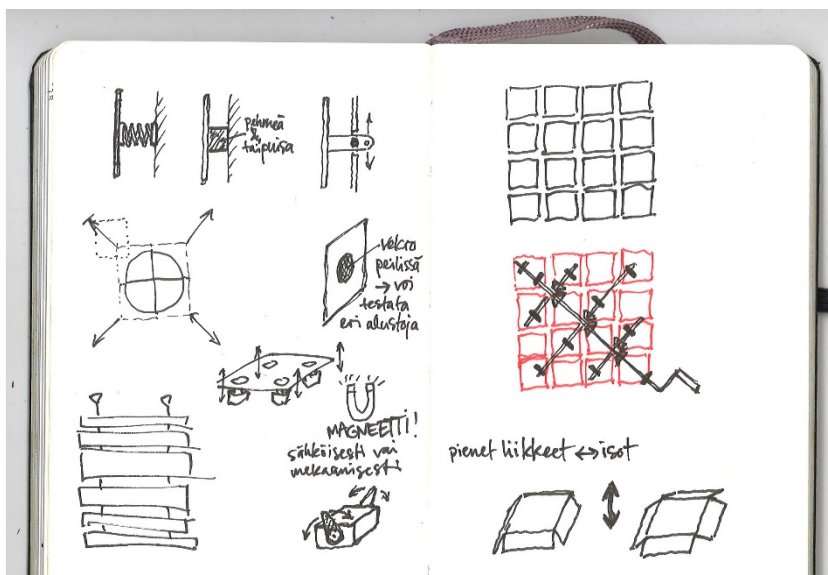 pehmeä
&
taipuisa
velcro
peilissä
→ voi
testata
eri alustoja
MAGNEETTI!
sähköisesti vai
mekaanisesti
pienet liikkeet ↔ isot